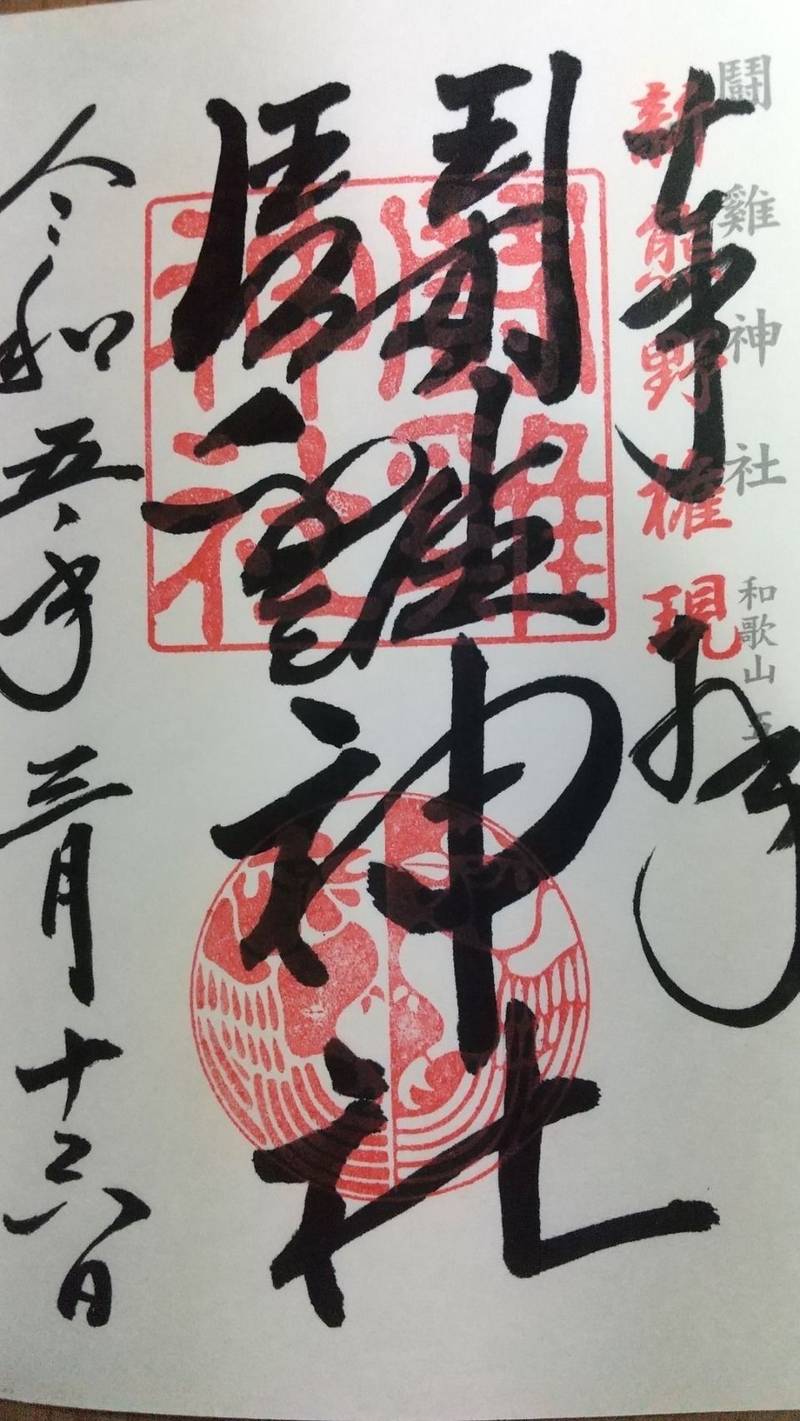 鬪雞神社 和歌山 五
新熊野権現
奉拝
鬪雞神社
鬪雞神社
令和五年三月十六日